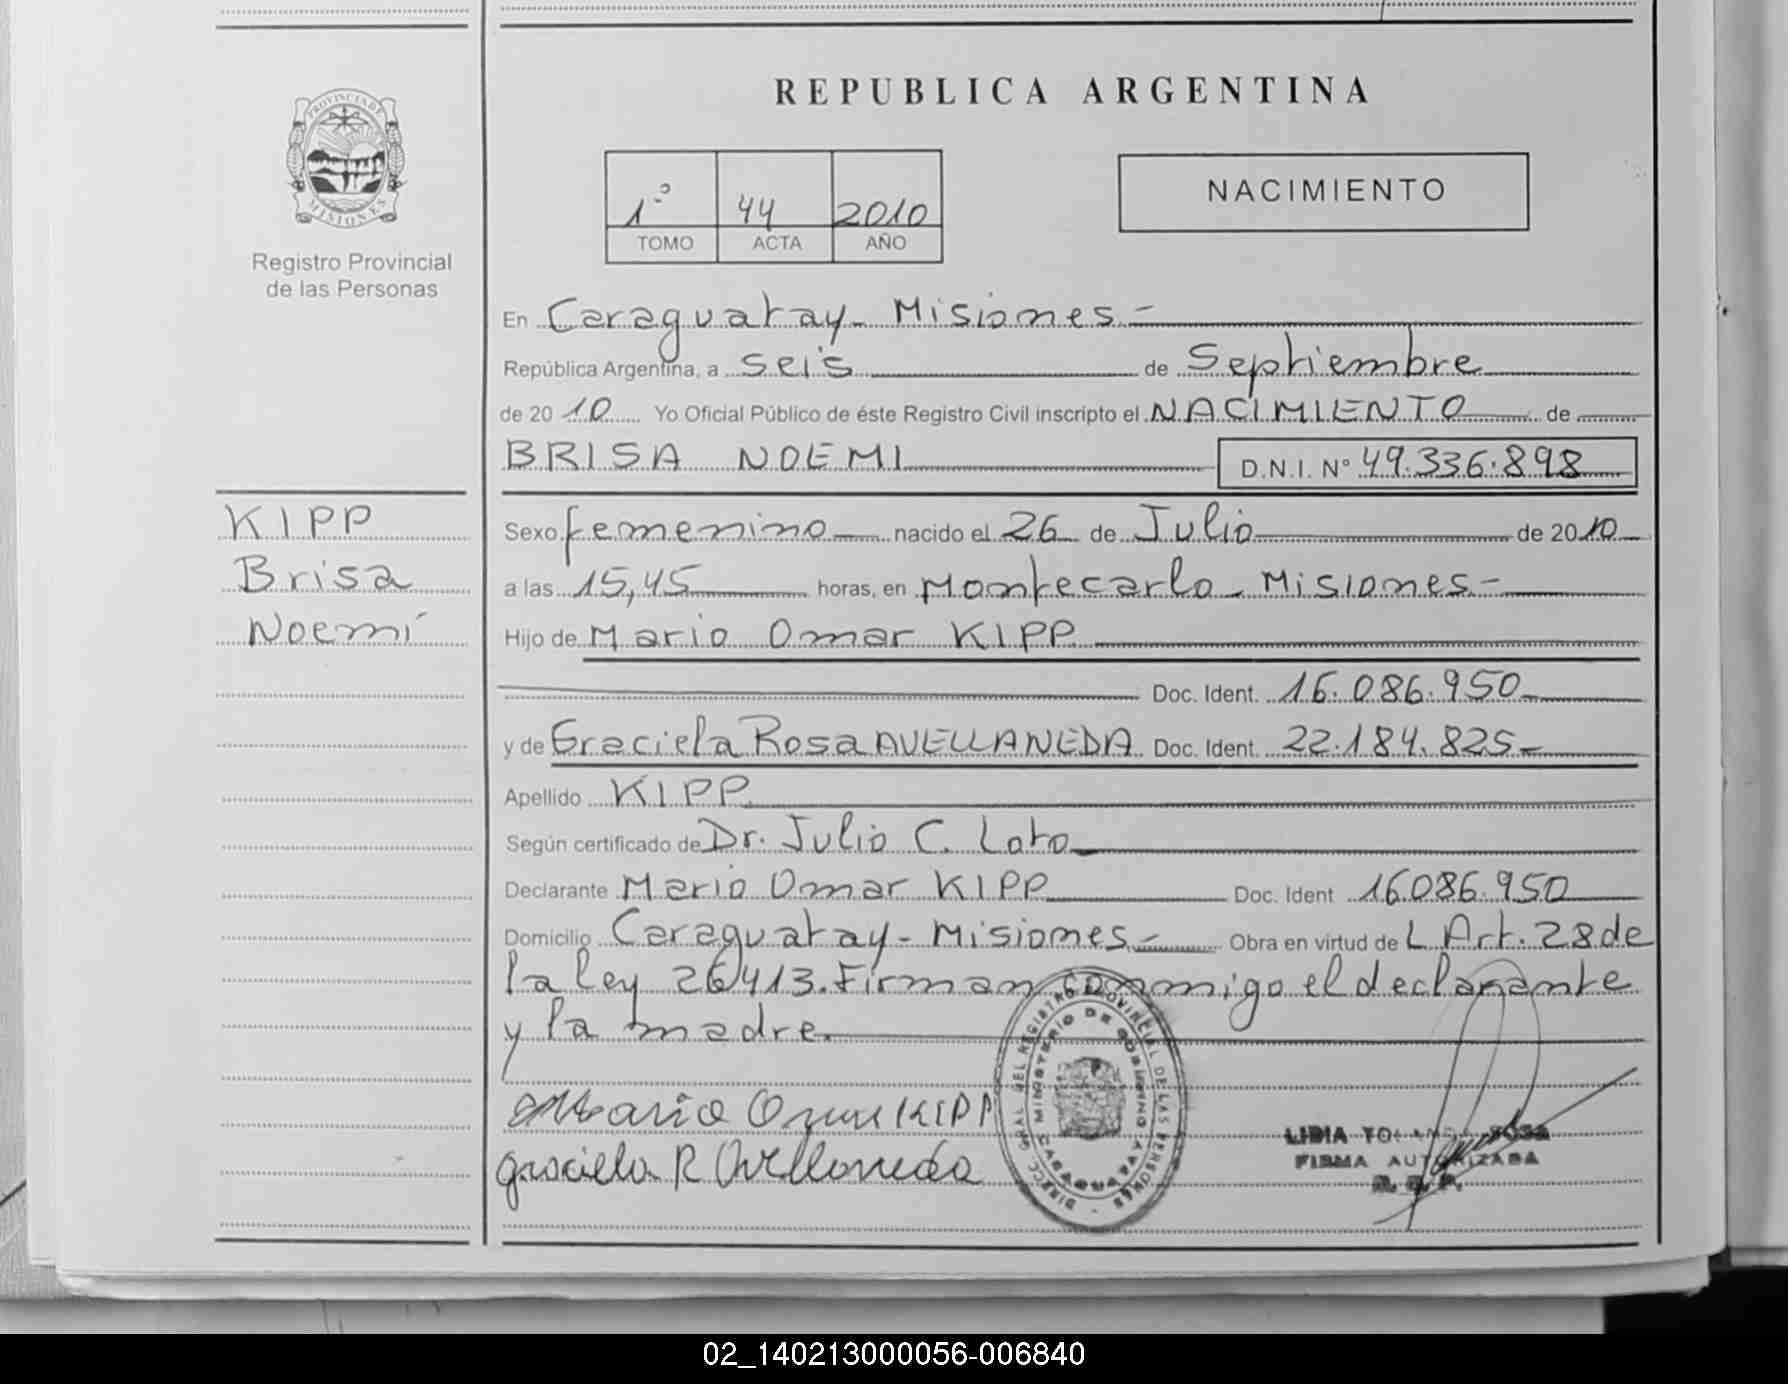 REPUBLICA ARGENTINA
PROVINCIA DE
MISIONES
Registro Provincial
de las Personas
1º 44 2010
TOMO ACTA AÑO
NACIMIENTO
En Caraguatay - Misiones -
República Argentina, a seis de Septiembre
de 2010 Yo Oficial Público de éste Registro Civil inscripto el NACIMIENTO de
BRISA NOEMI D.N.I. Nº 49.336.898
KIPP
Brisa
Noemí
Sexo femenino nacido el 26 de Julio de 2010
a las 15,45 horas, en Montecarlo - Misiones -
Hijo de Mario Omar KIPP
Doc. Ident. 16.086.950
y de Graciela Rosa AVELLANEDA Doc. Ident. 22.184.825
Apellido KIPP
Según certificado de Dr. Julio C. Loto
Declarante Mario Omar KIPP Doc. Ident 16086.950
Domicilio Caraguatay - Misiones - Obra en virtud de L Art. 28 de
la ley 26413. Firman conmigo el declarante
y la madre.
Mario Omar KIPP
Graciela R Avellaneda
DIRECC. GRAL DEL REGISTRO PROVINCIAL DE LAS PERSONAS
MINISTERIO DE GOBIERNO
LIDIA
FIRMA AUTORIZADA
02_140213000056-006840